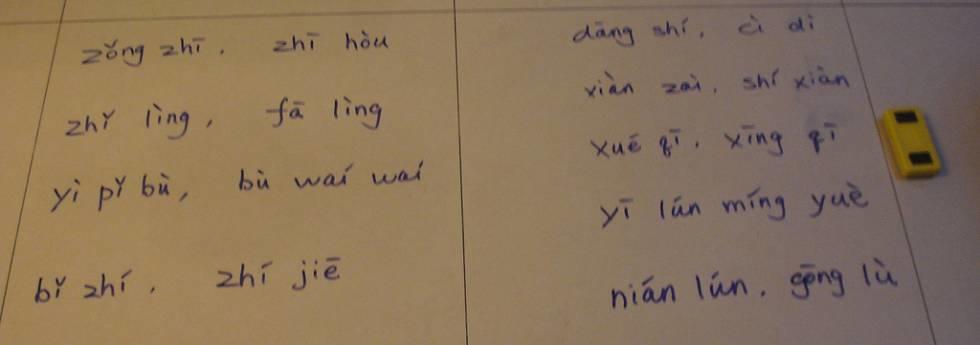 zǒng zhī. zhī hòu
zhǐ lìng, fā lìng
yì pǐ bù, bù waí waí
bǐ zhí. zhí jiē
dāng shí. cì dì
xiàn zài. shí xiàn
xué qī. xīng qī
yī lún míng yuè
nián lún. gōng lù